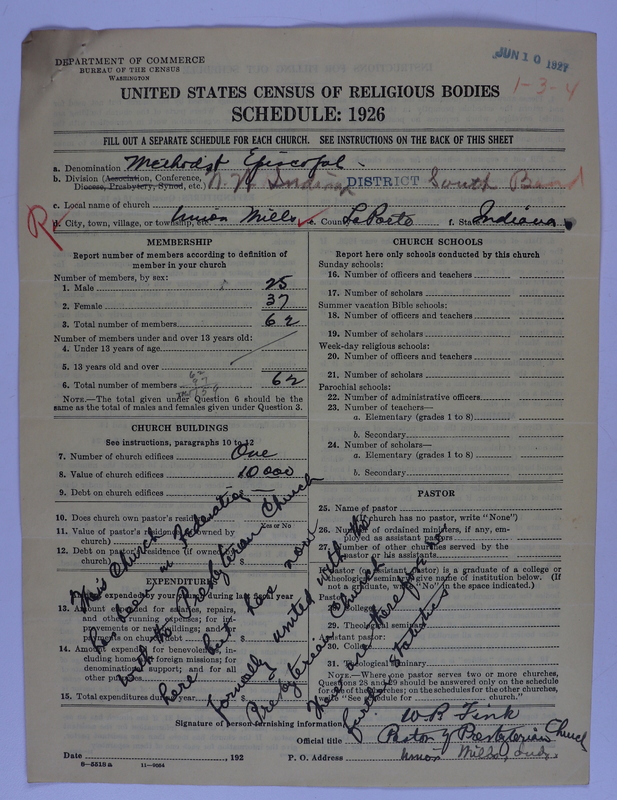 DEPARTMENT OF COMMERCE
BUREAU OF THE CENSUS
WASHINGTON
JUN 10 1927
1-3-4
UNITED STATES CENSUS OF RELIGIOUS BODIES
SCHEDULE: 1926
FILL OUT A SEPARATE SCHEDULE FOR EACH CHURCH. SEE INSTRUCTIONS ON THE BACK OF THIS SHEET
a. Denomination Methodist Episcopal
b. Division (Association, Conference, Diocese, Presbytery, Synod, etc.) N. W. Indiana DISTRICT South Bend
c. Local name of church
R
d. City, town, village, or township, etc. Union Mills e. County LaPorte f. State Indiana
MEMBERSHIP
Report number of members according to definition of member in your church
Number of members, by sex:
1. Male 25
2. Female 37
3. Total number of members 62
Number of members under and over 13 years old:
4. Under 13 years of age
5. 13 years old and over
6. Total number of members 62
NOTE.—The total given under Question 6 should be the same as the total of males and females given under Question 3.
CHURCH BUILDINGS
See instructions, paragraphs 10 to 12
7. Number of church edifices One
8. Value of church edifices 10000
9. Debt on church edifices
10. Does church own pastor's residence
Yes or No
11. Value of pastor's residence (if owned by church) $
12. Debt on pastor's residence (if owned by church) $
EXPENDITURES
expended by your church during last fiscal year
13. Amount expended for salaries, repairs, and other running expenses; for improvements or new buildings; and for payments on church debt $
14. Amount expended for benevolences, including home and foreign missions; for denominational support; and for all other purposes $
15. Total expenditures during year $
This Church
has been in Federation
with the Presbyterian Church
here but has now
formally united with the
Presbyterian Church
There are therefore no
further statistics
CHURCH SCHOOLS
Report here only schools conducted by this church
Sunday schools:
16. Number of officers and teachers
17. Number of scholars
Summer vacation Bible schools:
18. Number of officers and teachers
19. Number of scholars
Week-day religious schools:
20. Number of officers and teachers
21. Number of scholars
Parochial schools:
22. Number of administrative officers
23. Number of teachers—
a. Elementary (grades 1 to 8)
b. Secondary
24. Number of scholars—
a. Elementary (grades 1 to 8)
b. Secondary
PASTOR
25. Name of pastor
(If church has no pastor, write "None")
26. Number of ordained ministers, if any, employed as assistant pastors
27. Number of other churches served by the pastor or his assistants
If pastor (or assistant pastor) is a graduate of a college or theological seminary give name of institution below. (If not a graduate, write "No" in the space indicated.)
Pastor:
28. College
29. Theological seminary
Assistant pastor:
30. College
31. Theological seminary
NOTE.—Where one pastor serves two or more churches, Questions 28 and 29 should be answered only on the schedule for one of the churches; on the schedules for the other churches, write "See schedule for church."
Signature of person furnishing information W R Fink
Official title Pastor of Presbyterian Church
Date , 192 P. O. Address Union Mills, Indi.
8—5518a 11—9064